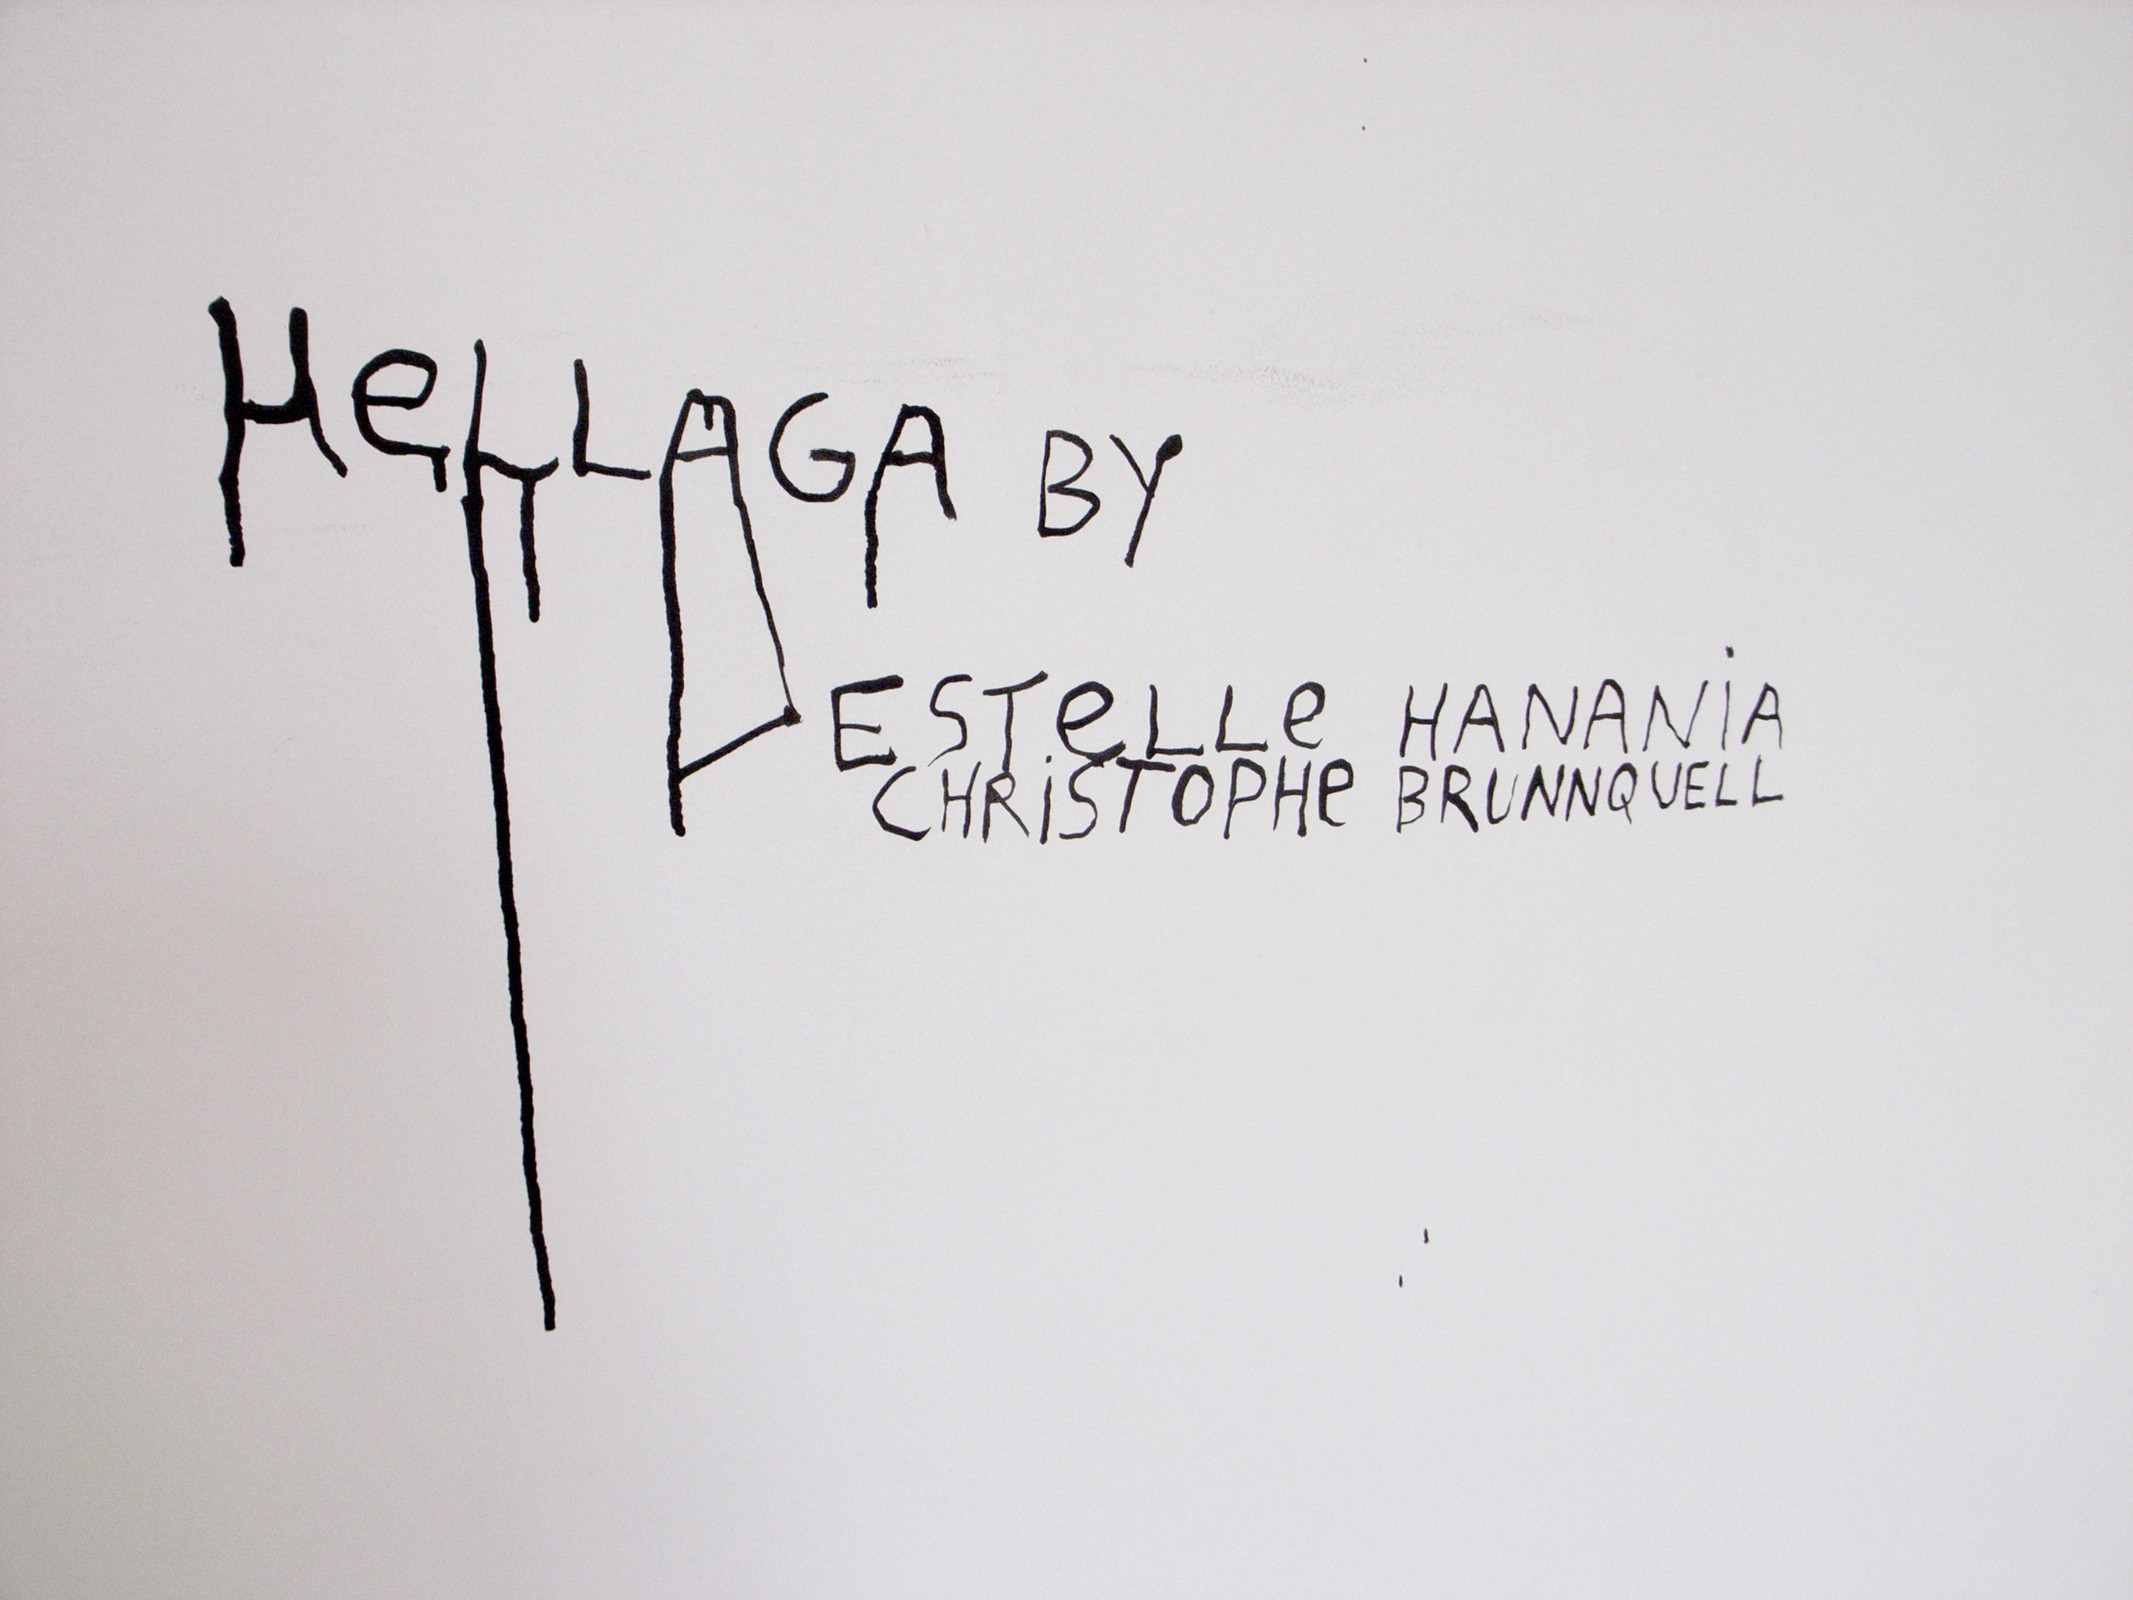 HeLLAGA BY
ESTeLLe HANANiA
CHRiSTOPHe BRUNNQUELL